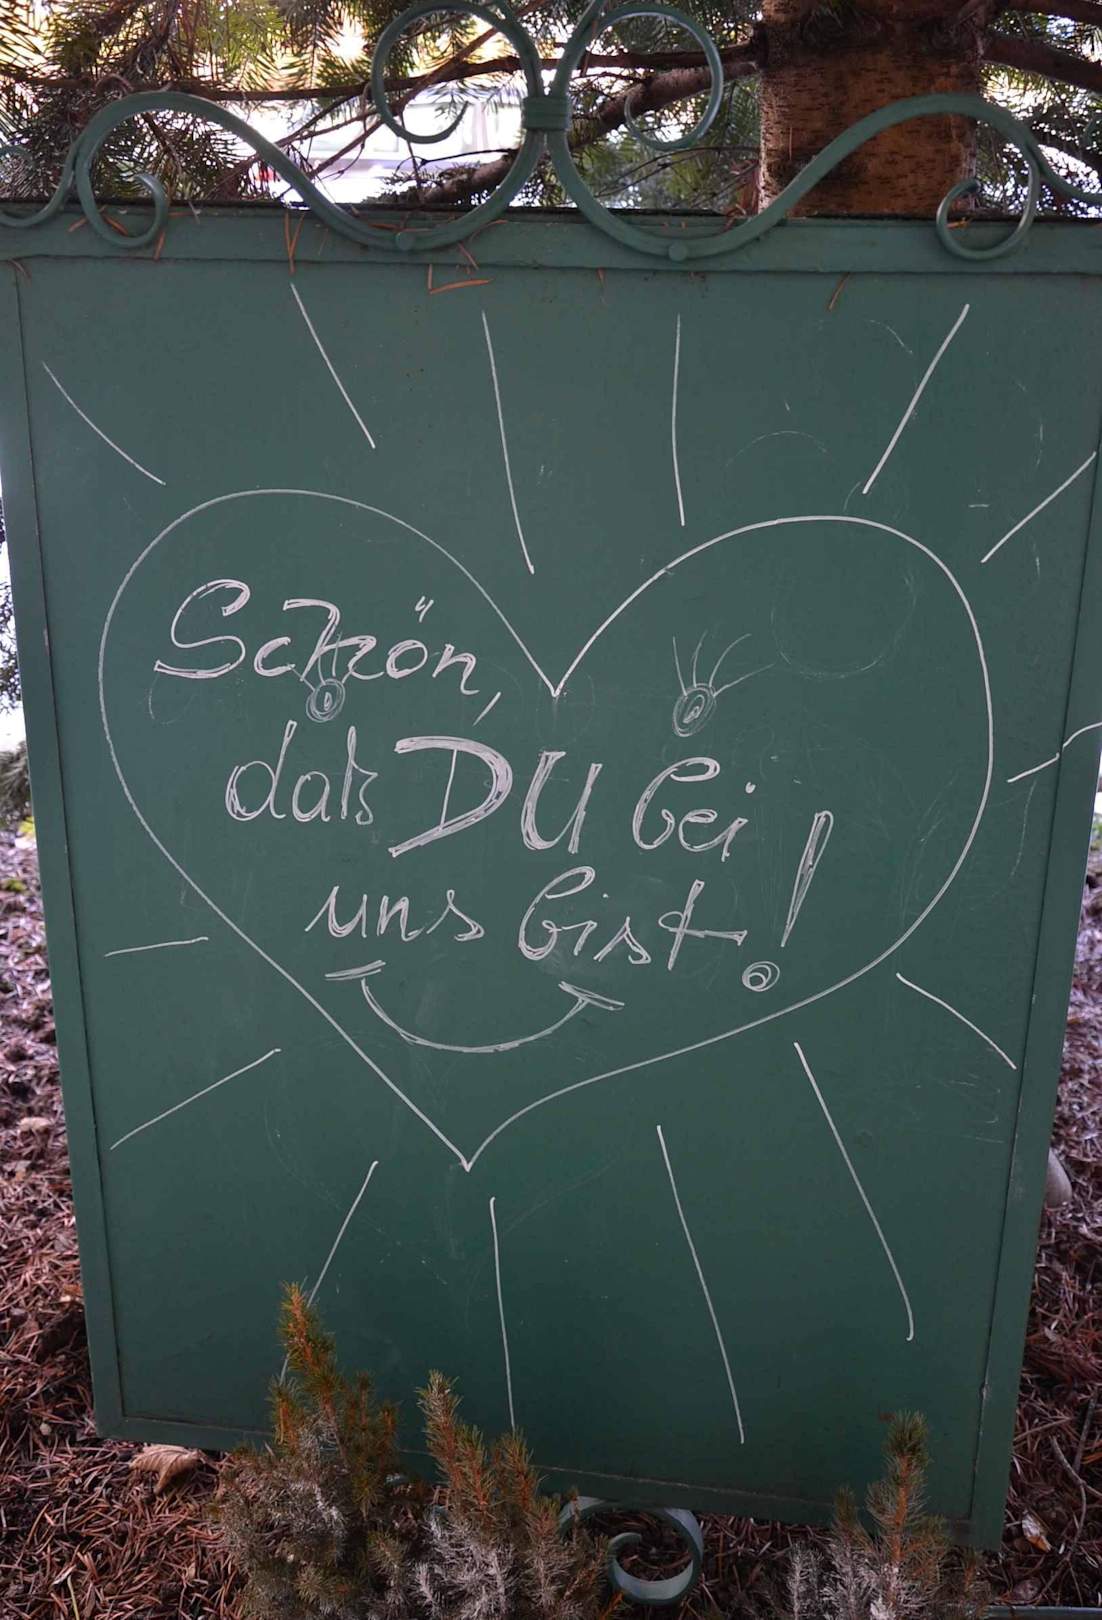 Schön,
daß DU bei
uns bist!